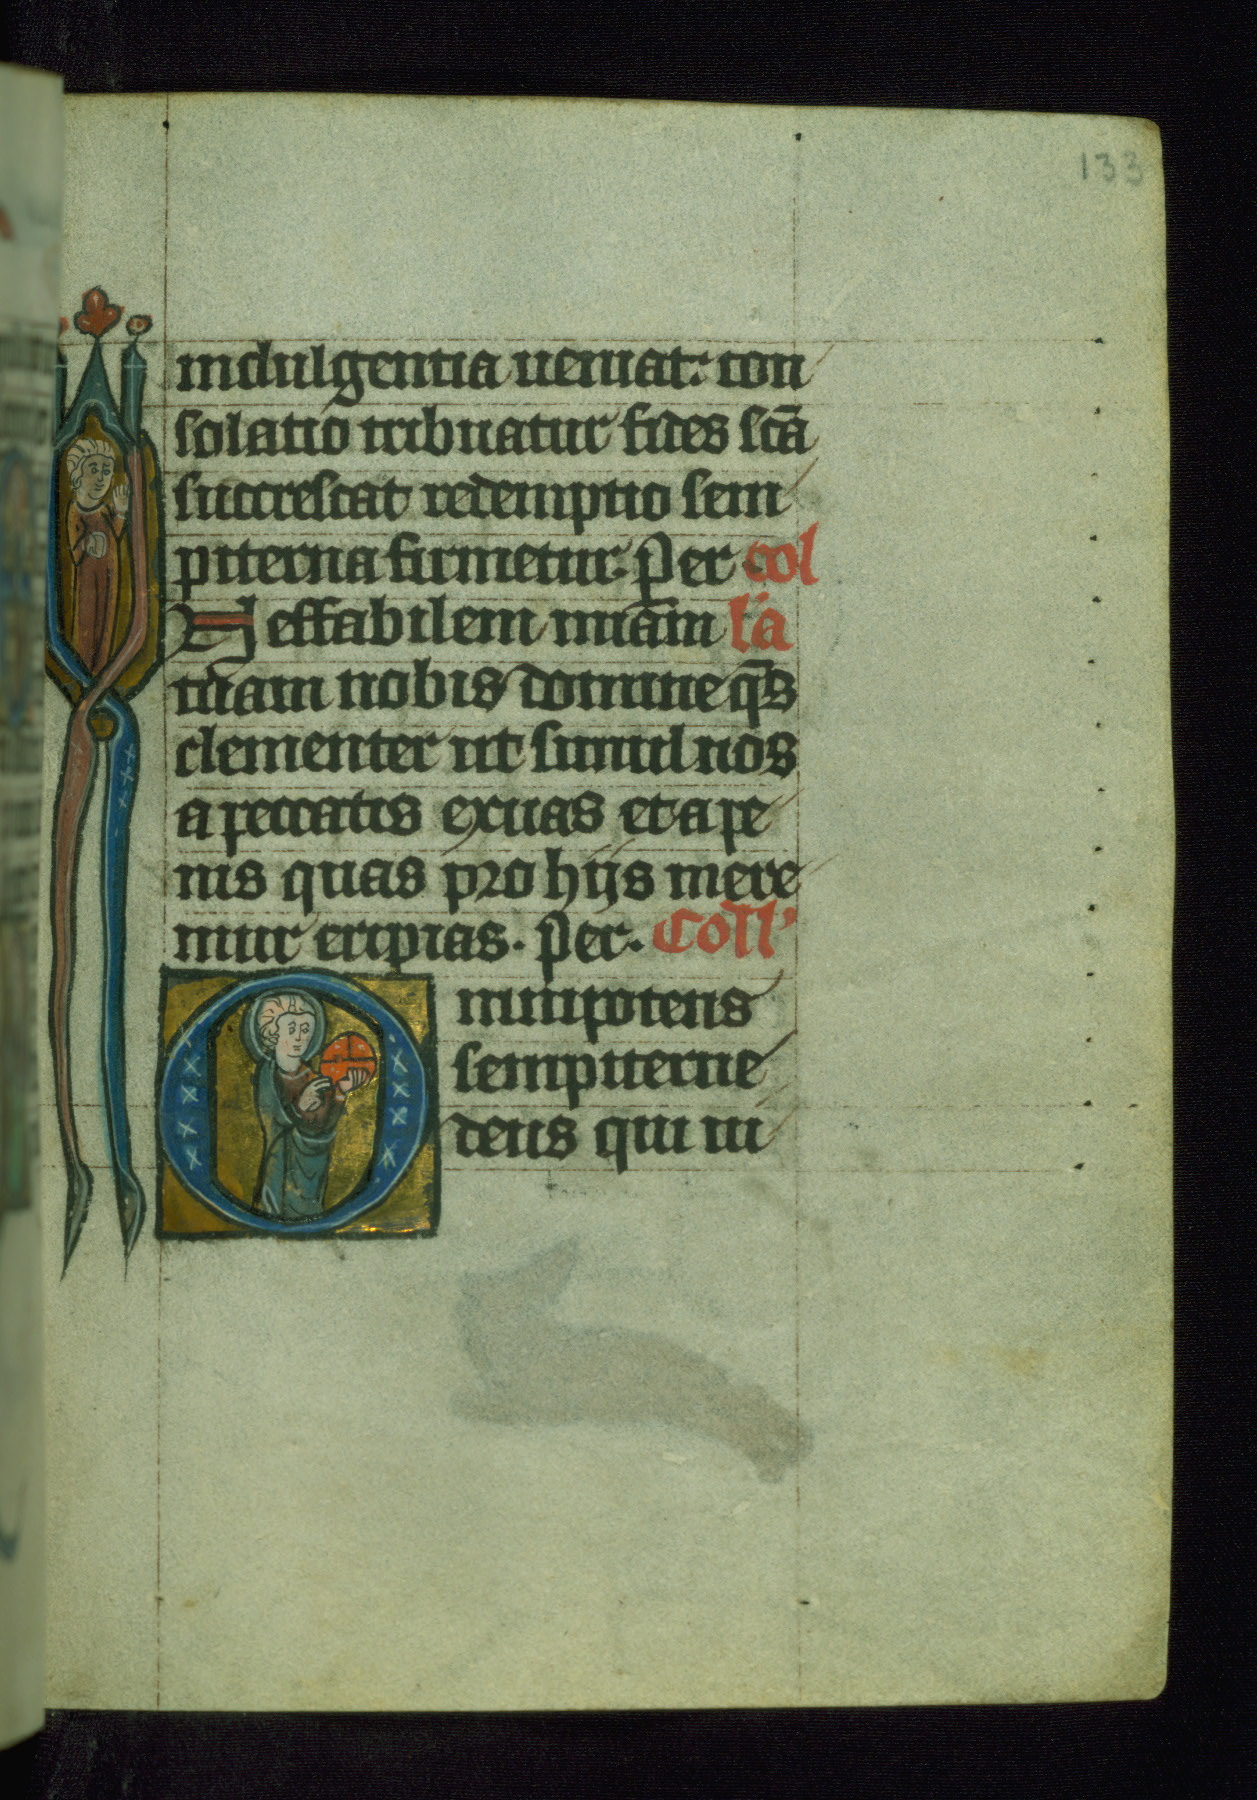 133
indulgentia ueniat: con
solatio tribuatur fides sc̄a
succrescat redemptio sem
piterna firmetur. Per. col
effabilem mīam l'a
tuam nobis domine q̄s
clementer ut simul nos
a peccatis exuas et a pe
nis quas pro hijs mere
mur eripias. Per. Coll'
Omnipotens
sempiterne
deus qui ui